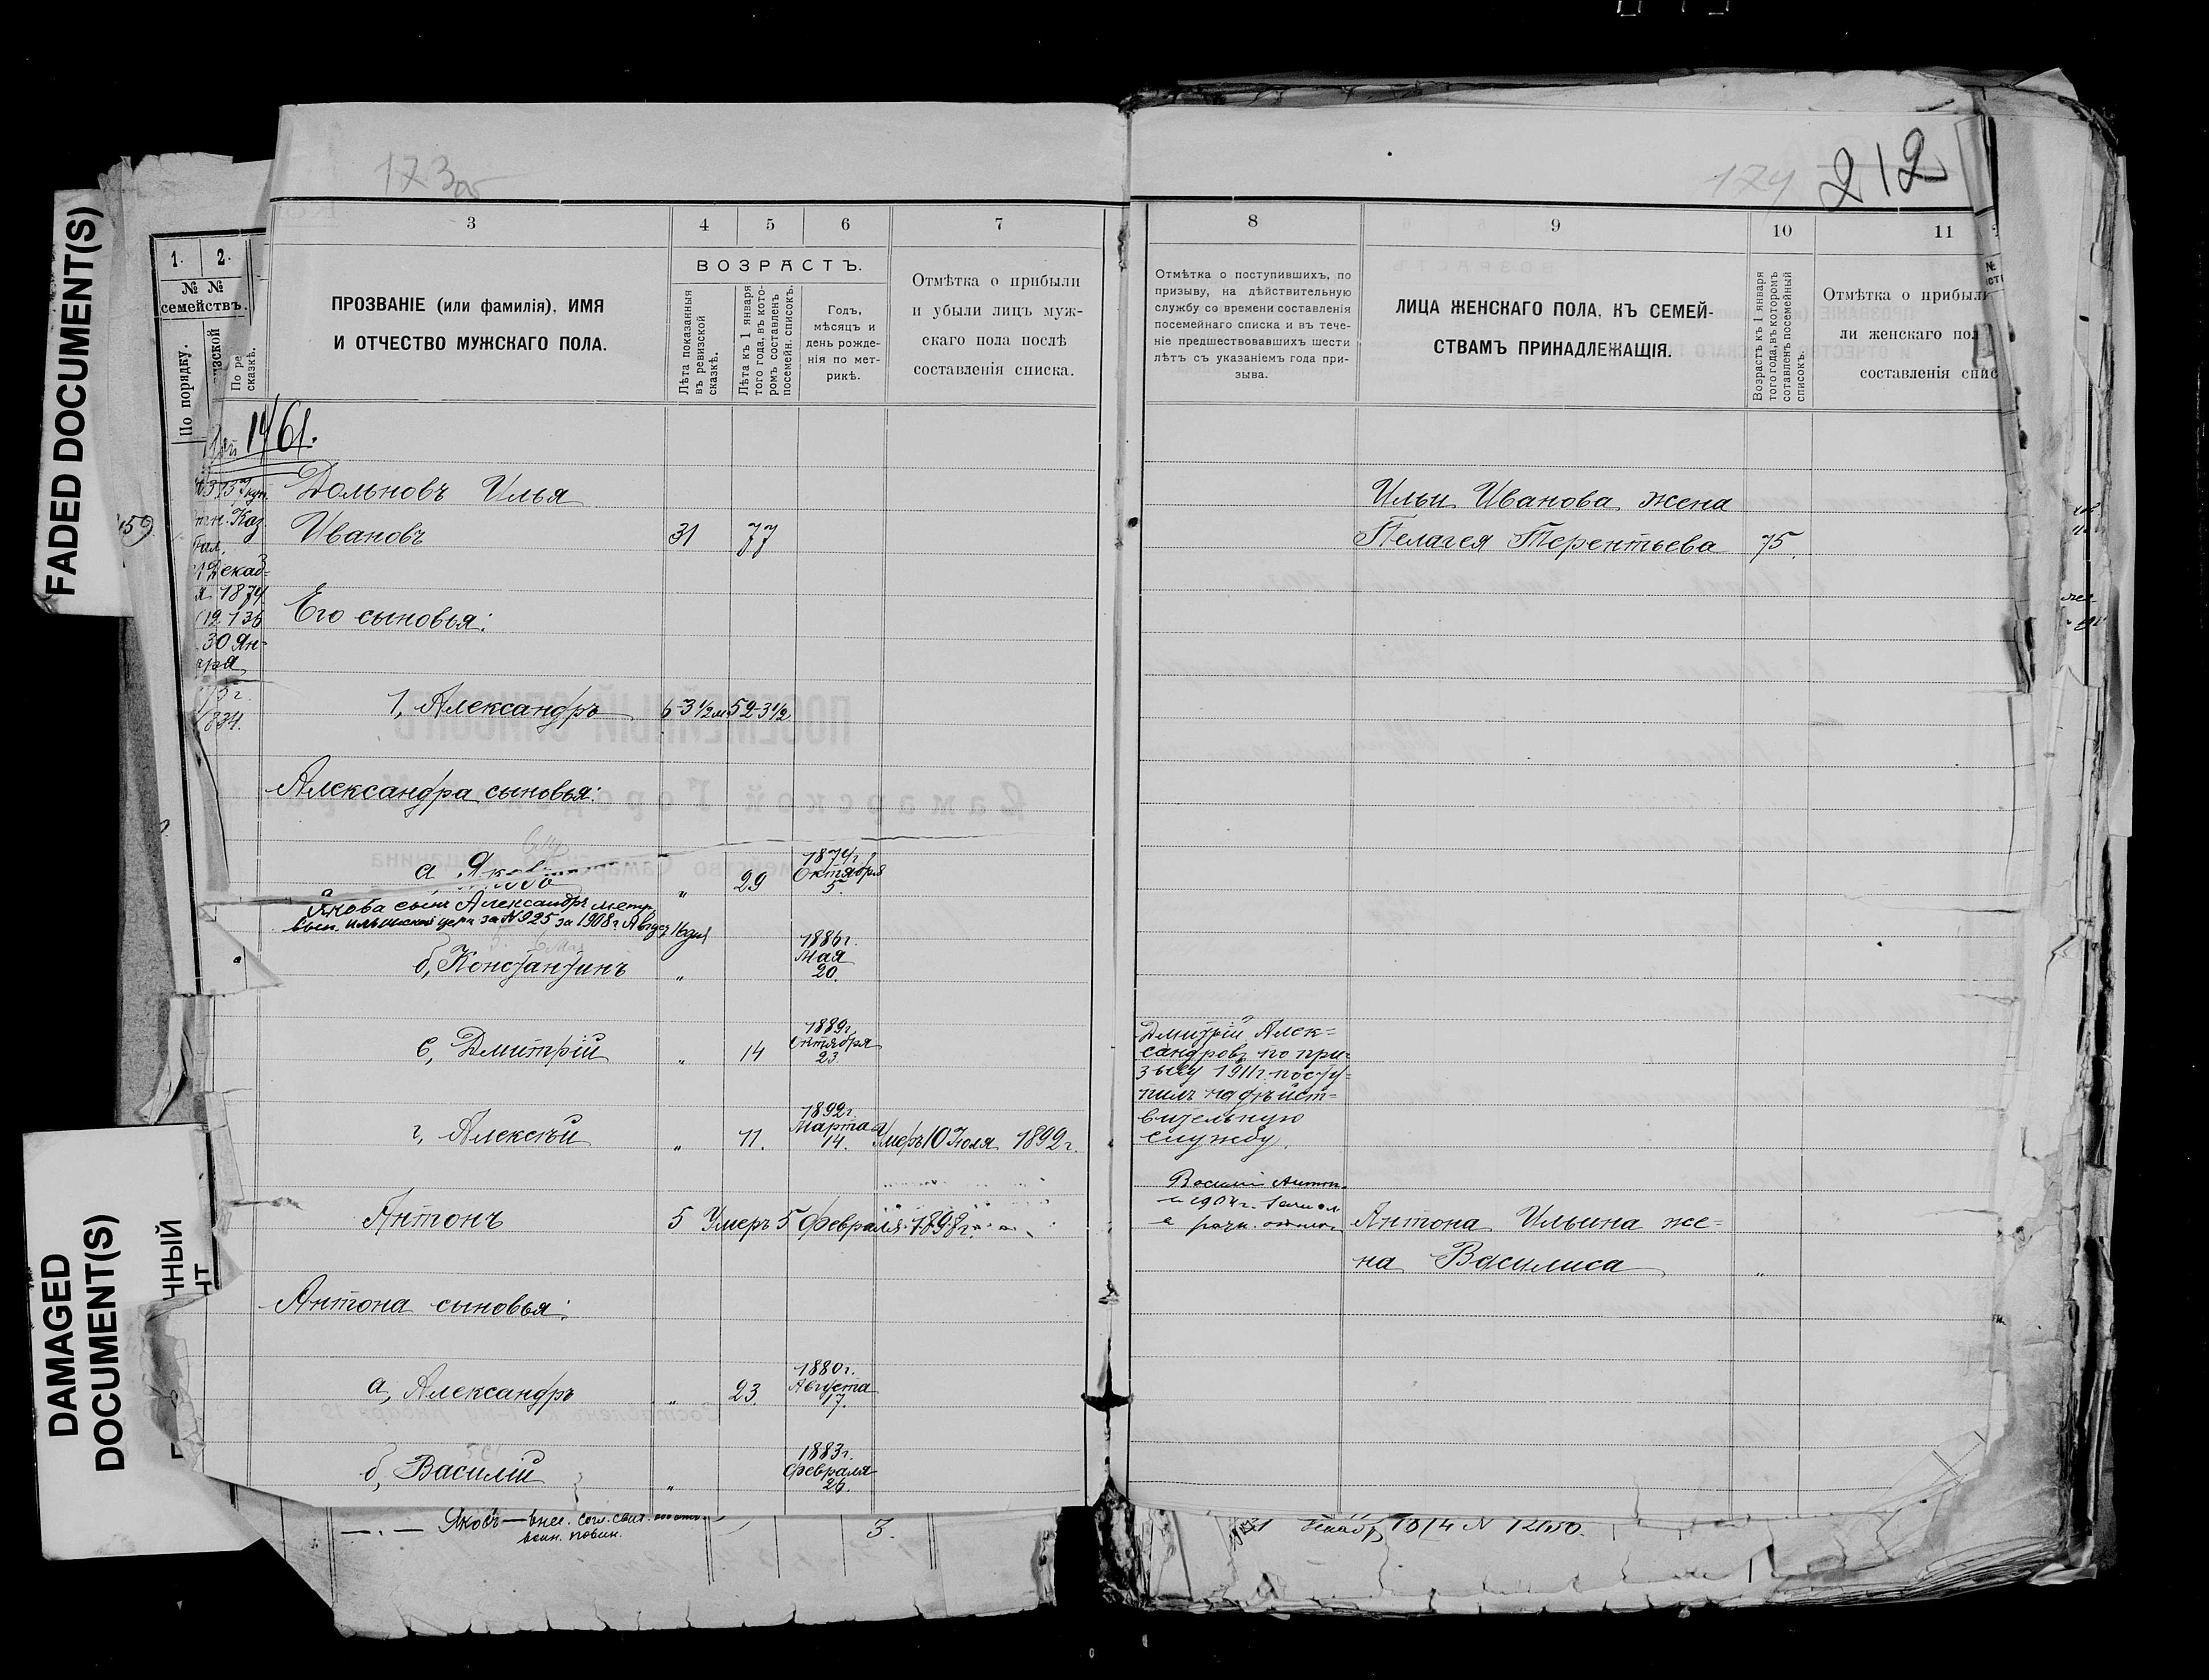 FADED DOCUMENT(S)
DAMAGED
DOCUMENT(S)
173об
174 212
1. 2.
№ №
семействъ.
По порядку.
По ре
сказкѣ.
3 4 5 6 7
ПРОЗВАНІЕ (или фамилія), ИМЯ
И ОТЧЕСТВО МУЖСКАГО ПОЛА.
ВОЗРАСТЪ.
Лѣта показанныя
въ ревизской
сказкѣ.
Лѣта къ 1 января
того года, въ кото-
ромъ составленъ
посемейн. списокъ.
Годъ,
мѣсяцъ и
день рожде-
нія по мет-
рикѣ.
Отмѣтка о прибыли
и убыли лицъ муж-
скаго пола послѣ
составленія списка.
8 9 10 11
Отмѣтка о поступившихъ, по
призыву, на дѣйствительную
службу со времени составленія
посемейнаго списка и въ тече-
ніе предшествовавшихъ шести
лѣтъ съ указаніемъ года при-
зыва.
ЛИЦА ЖЕНСКАГО ПОЛА, КЪ СЕМЕЙ-
СТВАМЪ ПРИНАДЛЕЖАЩІЯ.
Возрастъ къ 1 января
того года, въ которомъ
сотавленъ посемейный
списокъ.
Отмѣтка о прибыли
ли женскаго пол
составленія спис
1461.
Дольновъ Илья
Ивановъ 31 77
1874
136
30 Ян-
834.
Ильи Иванова жена
Пелагея Терентьева 75.
Его сыновья:
1, Александръ 6-3½м 52-3½
Александра сыновья:
а, Яковъ „ 29 1874г. Октября 5.
Якова сынъ Александръ метр.
за №925 за 1908г.
б, Константинъ „ 1886г. Мая 20.
в, Дмитрій „ 14 1889г. Октября 23.
Дмитрій Алек-
сандровъ по при-
зыву 1911г. посту-
пилъ на дѣйст-
вительную
службу.
г, Алексѣй „ 11. 1892г. Марта 14. Умеръ 10 Іюля 1892г.
Антонъ 5 Умеръ 5 Февраля 1898г.
Василій Антон.
Антона Ильина же-
на Василиса „
Антона сыновья:
а, Александръ „ 23. 1880г. Августа 17.
б, Василій „ 1883г. Февраля 26.
Яковъ — внес. согл. свид.
воин. повин.
3.